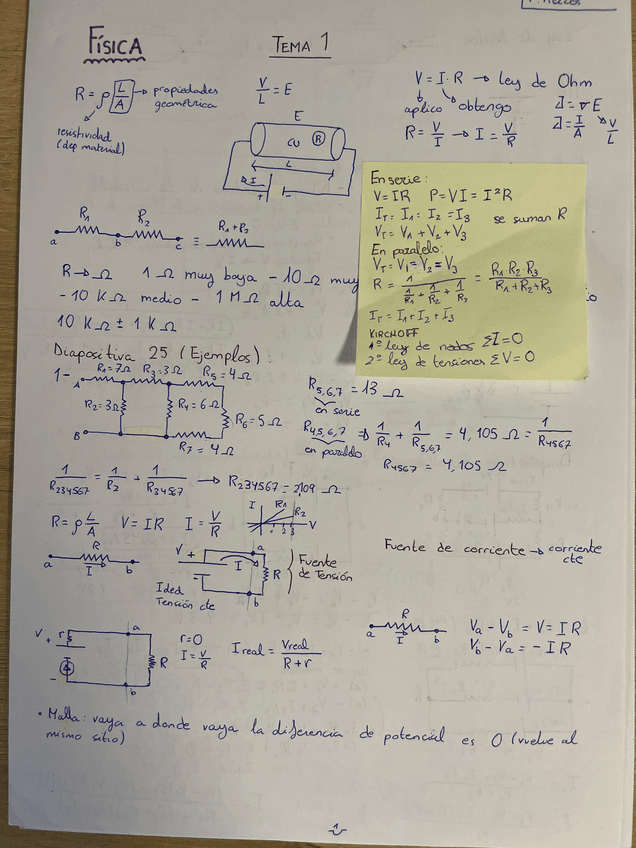 FÍSICA
TEMA 1
R = ρ L/A → propiedades geométrica
resistividad
(dep material)
V/L = E
E
CU R
L
I
+ -
V = I · R → ley de Ohm
aplico obtengo
R = V/I → I = V/R
J = σ E
J = I/A
V/L
En serie:
V = IR P = VI = I²R
I_T = I_1 = I_2 = I_3 se suman R
V_T = V_1 + V_2 + V_3
En paralelo:
V_T = V_1 = V_2 = V_3
R = 1/(1/R_1 + 1/R_2 + 1/R_3) = R_1 R_2 R_3/(R_1 + R_2 + R_3)
I_T = I_1 + I_2 + I_3
KIRCHOFF
1ª ley de nodos ΣI = 0
2ª ley de tensiones ΣV = 0
R_1 R_2
a b c ≡ R_1 + R_2
R → Ω 1 Ω muy baja - 10 Ω muy
- 10 K Ω medio - 1 M Ω alta
10 K Ω ± 1 K Ω
Diapositiva 25 (Ejemplos):
1- A R_1 = 7Ω R_3 = 3Ω R_5 = 4Ω
R_2 = 3Ω R_4 = 6Ω R_6 = 5Ω
B R_7 = 4Ω
R_5,6,7 = 13 Ω
en serie
R_4,5,6,7 ⇒ 1/R_4 + 1/R_5,6,7 = 4,105 Ω = 1/R_4567
en paralelo
R_4567 = 4,105 Ω
1/R_234567 = 1/R_2 + 1/R_34567 → R_234567 = 2,109 Ω
R = ρ L/A V = IR I = V/R
I R_1 R_2 V
1 2 3
a R b
I
V + a
I R
b
Ideal
Tensión cte
Fuente
de
Tensión
Fuente de corriente → corriente
cte
V + r a
- R
b
r = 0
I = V/R
I real = V real/(R + r)
a R b
I
V_a - V_b = V = I R
V_b - V_a = - I R
• Malla: vaya a donde vaya la diferencia de potencial es 0 (vuelve al
mismo sitio)
1